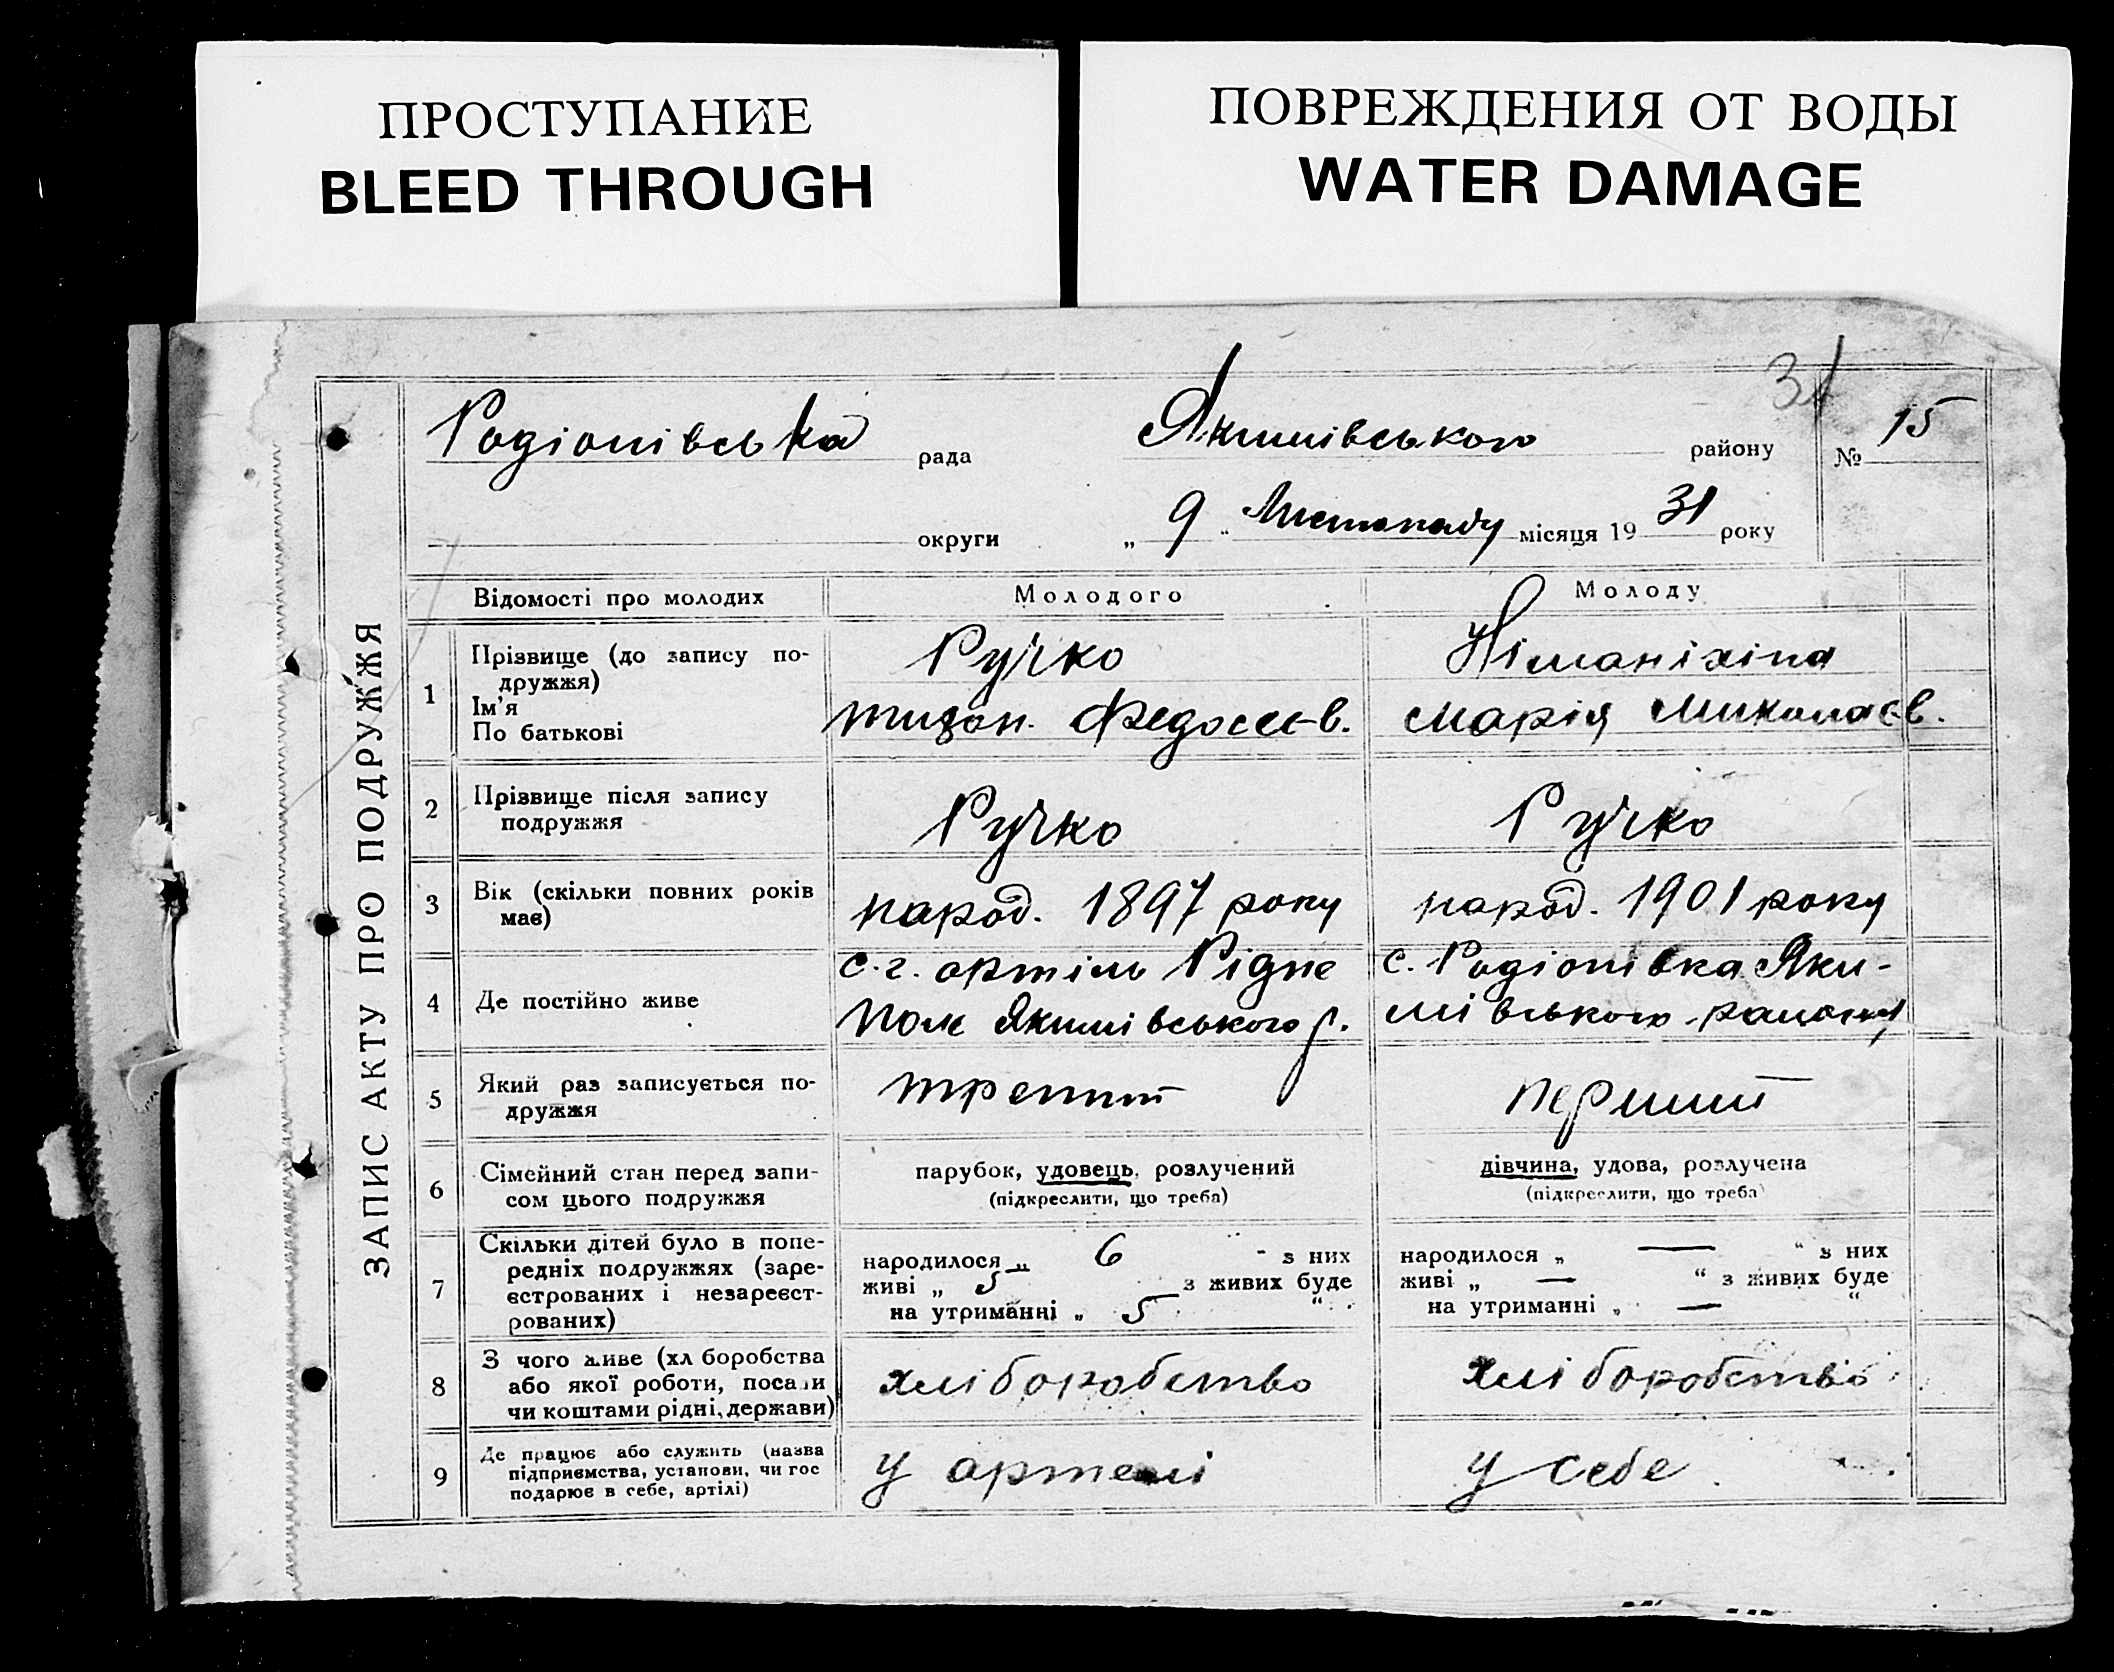 ПРОСТУПАНИЕ
BLEED THROUGH
ПОВРЕЖДЕНИЯ ОТ ВОДЫ
WATER DAMAGE
31
ЗАПИС АКТУ ПРО ПОДРУЖЖЯ
Родіонівська рада Якимівського району № 15
округи „ 9 " Листопаду місяця 1931 року
Відомості про молодих Молодого Молоду
1 Прізвище (до запису подружжя) Ім'я По батькові
Ручко
тихон. Федосеєв.
марія миколаєв.
2 Прізвище після запису
подружжя
Ручко Ручко
3 Вік (скільки повних років
має)
народ. 1897 року народ. 1901 року
4 Де постійно живе
с.г. артіль Рідне
Поле Якимівського р.
с. Родіонівка Яки-
мівського району
5 Який раз записується по-
дружжя
третит перший
6 Сімейний стан перед запи-
сом цього подружжя
парубок, удовець, розлучений
(підкреслити, що треба)
дівчина, удова, розлучена
(підкреслити, що треба)
7 Скільки дітей було в попе-
редніх подружжях (заре-
єстрованих і незареєст-
рованих)
народилося „ 6 " з них
живі „ 5 з живих буде
на утриманні „ 5 "
народилося „ — " з них
живі „ — " з живих буде
на утриманні „ — "
8 З чого живе (хліборобства
або якої роботи, посади
чи коштами рідні, держави)
хліборобство хліборобство
9 Де працює або служить (назва
підприємства, установи, чи гос
подарює в себе, артілі)
у артелі у себе